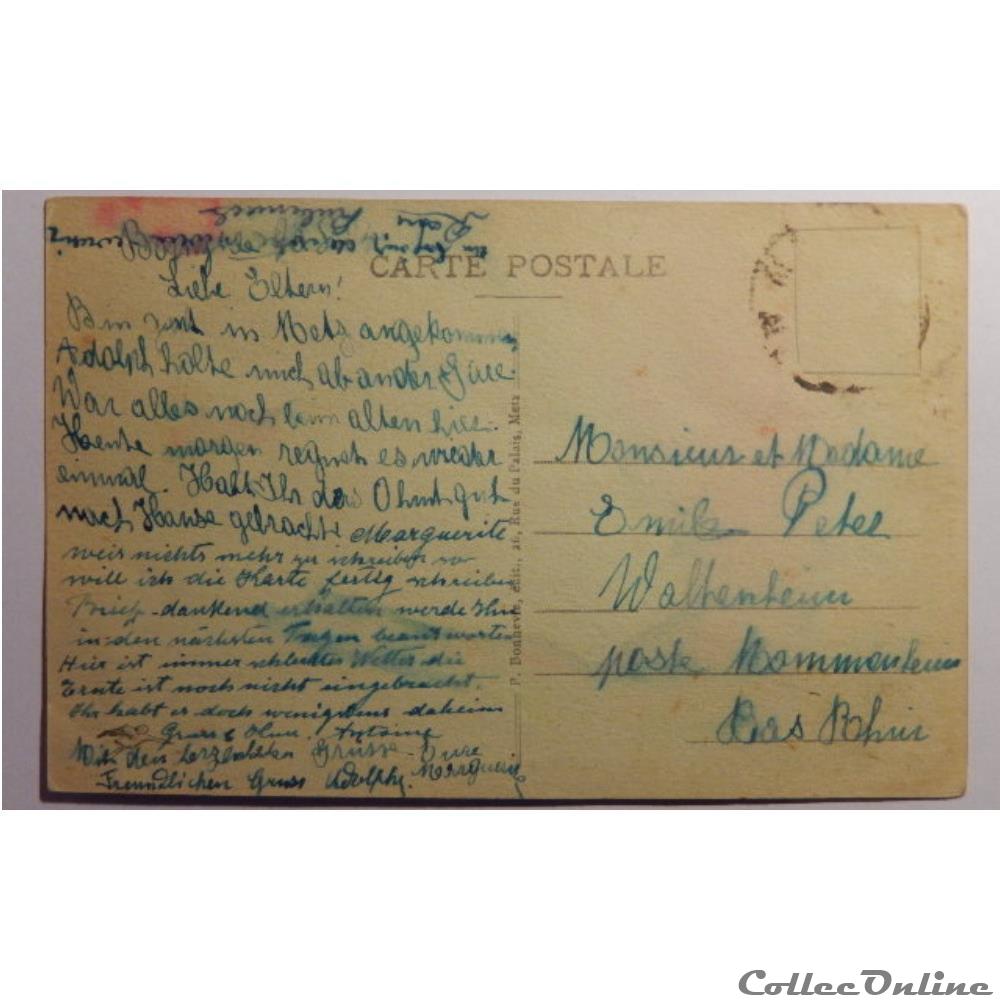 CARTE POSTALE
Liebe Eltern!
Bin in Metz angekommen,
Adolph holte mich ab an der Gare.
War alles noch beim alten hier.
Heute morgen regnet es wieder
einmal. Habt Ihr das Ohmt gut
nach Hause gebracht. Marguerite
weis nichts mehr zu schreiben so
will ich die Karte fertig schreiben
Brief dankend erhalten werde Ihn
in den nächsten Tagen beantworten
Hier ist immer schlechtes Wetter die
Ernte ist noch nicht eingebracht.
Ihr habt es doch wenigstens daheim
Gruss Antoine
Mit den herzlichsten Grüsse Eure
Freundlichen Gruss Adolph. Marguerit
P. Bonnevie, édit., 26, Rue du Palais, Metz
Monsieur et Madame
Emile Peter
Waltenheim
poste Mommenheim
Bas Rhin
CollecOnline